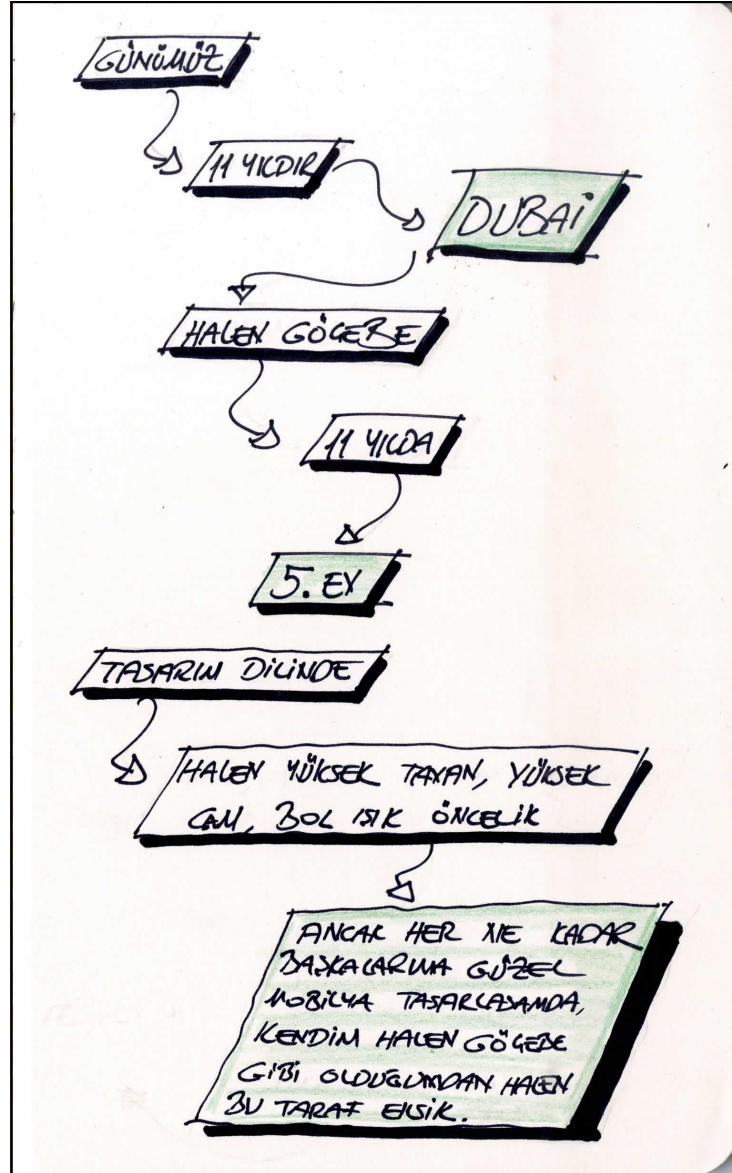 GÜNÜMÜZ
11 YILDIR
DUBAİ
HALEN GÖÇEBE
11 YILDA
5. EV
TASARIM DİLİNDE
HALEN YÜKSEK TAVAN, YÜKSEK
CAM, BOL IŞIK ÖNCELİK
ANCAK HER NE KADAR
BAŞKALARINA GÜZEL
MOBİLYA TASARLASAMDA,
KENDİM HALEN GÖÇEBE
GİBİ OLDUĞUMDAN HALEN
BU TARAF EKSİK.